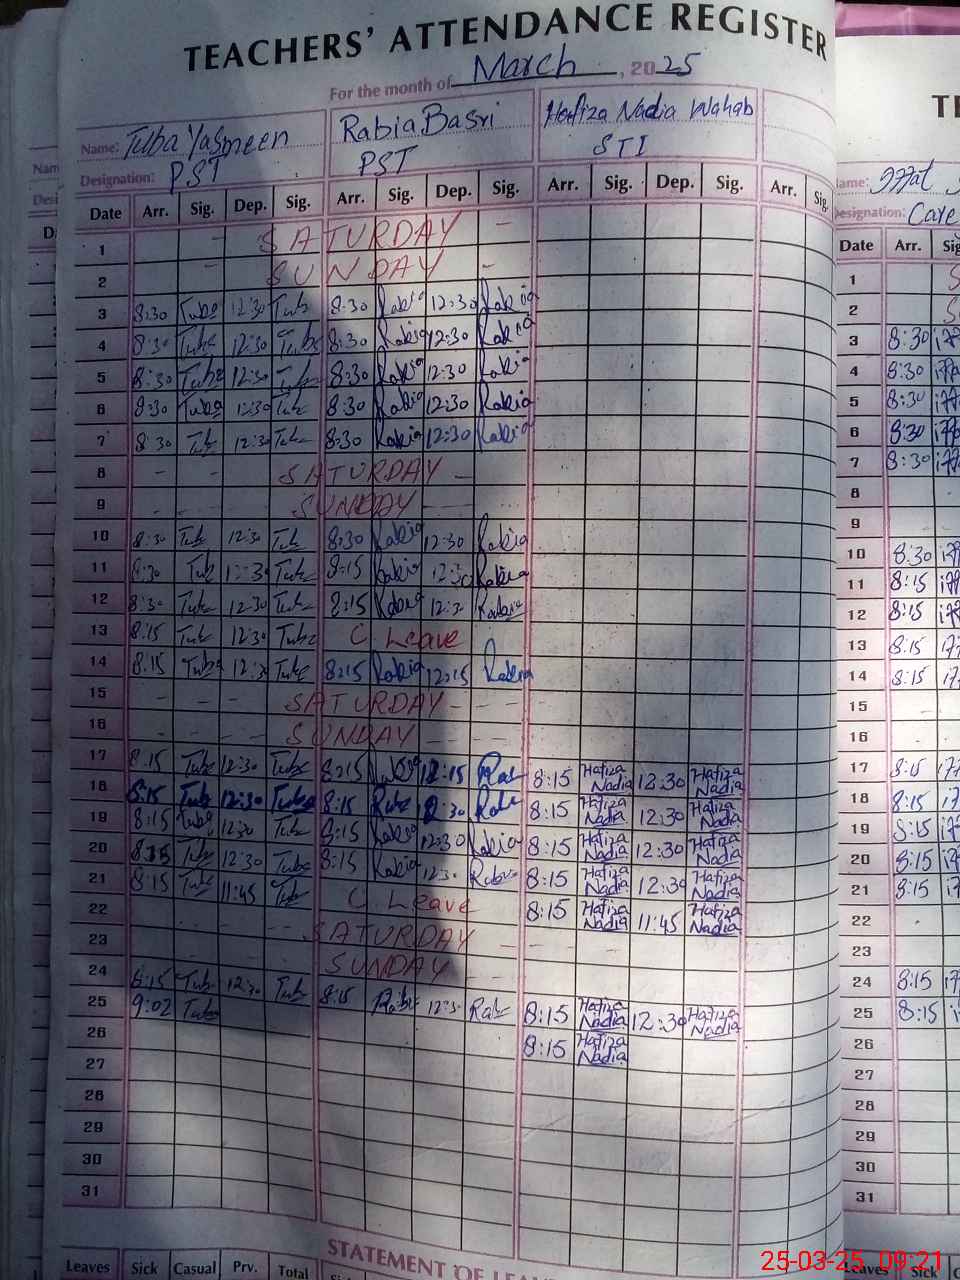 TEACHERS' ATTENDANCE REGISTER
For the month of March, 2025
Name: Tuba Yasmeen Rabia Basri Hafiza Nadia Wahab
Designation: PST PST STI
Date Arr. Sig. Dep. Sig. Arr. Sig. Dep. Sig. Arr. Sig. Dep. Sig. Arr. Sig.
1 SATURDAY
2 SUNDAY
3 8:30 Tuba 12:30 Tuba 8:30 Rabia 12:30 Rabia
4 8:30 Tuba 12:30 Tuba 8:30 Rabia 12:30 Rabia
5 8:30 Tuba 12:30 Tuba 8:30 Rabia 12:30 Rabia
6 8:30 Tuba 12:30 Tuba 8:30 Rabia 12:30 Rabia
7 8:30 Tub 12:30 Tuba 8:30 Rabia 12:30 Rabia
8 SATURDAY
9 SUNDAY
10 8:30 Tub 12:30 Tub 8:30 Rabia 12:30 Rabia
11 8:30 Tub 12:30 Tuba 8:15 Rabia 12:30 Rabia
12 8:30 Tuba 12:30 Tuba 8:15 Rabia 12:30 Rabia
13 8:15 Tub 12:30 Tuba C. Leave
14 8:15 Tuba 12:30 Tuba 8:15 Rabia 12:15 Rabia
15 SATURDAY
16 SUNDAY
17 8:15 Tuba 12:30 Tuba 8:15 Rabia 12:15 Rab 8:15 Hafiza Nadia 12:30 Hafiza Nadia
18 8:15 Tuba 12:30 Tuba 8:15 Rabi 12:30 Rabi 8:15 Hafiza Nadia 12:30 Hafiza Nadia
19 8:15 Tuba 12:30 Tuba 8:15 Rabia 12:30 Rabia 8:15 Hafiza Nadia 12:30 Hafiza Nadia
20 8:15 Tub 12:30 Tuba 8:15 Rabia 12:30 Rabia 8:15 Hafiza Nadia 12:30 Hafiza Nadia
21 8:15 Tuba 11:45 Tub C. Leave 8:15 Hafiza Nadia 11:45 Hafiza Nadia
22 SATURDAY
23 SUNDAY
24 8:15 Tub 12:30 Tub 8:15 Rabi 12:30 Rab 8:15 Hafiza Nadia 12:30 Hafiza Nadia
25 9:02 Tuba 8:15 Hafiza Nadia
26
27
28
29
30
31
STATEMENT OF
Leaves Sick Casual Prv. Total
Designation: Care
Date Arr.
1
2
3 8:30
4 8:30
5 8:30
6 8:30
7 8:30
8
9
10 8:30
11 8:15
12 8:15
13 8:15
14 8:15
15
16
17 8:15
18 8:15
19 8:15
20 8:15
21 8:15
22
23
24 8:15
25 8:15
26
27
28
29
30
31
Leaves Sick
25-03-25 09:21